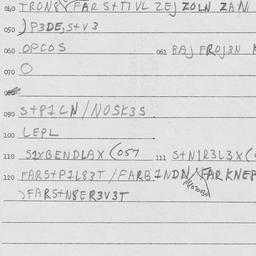 040 TRON8Y FARS+TIVL ZEJ ZOLN ZAN
050 )P3DE,S+V3
060 OPCOS 061 BAJ FROJ3N
070 O
080
090 S+P1CN/NOSK3S
100 LEPL
110 S1XBENDLAX (057 111 S+N1R3L3X(
120 FARS+P1L83T/FARB1NDN/FARKNEP
)FARS+N8ER3V3T